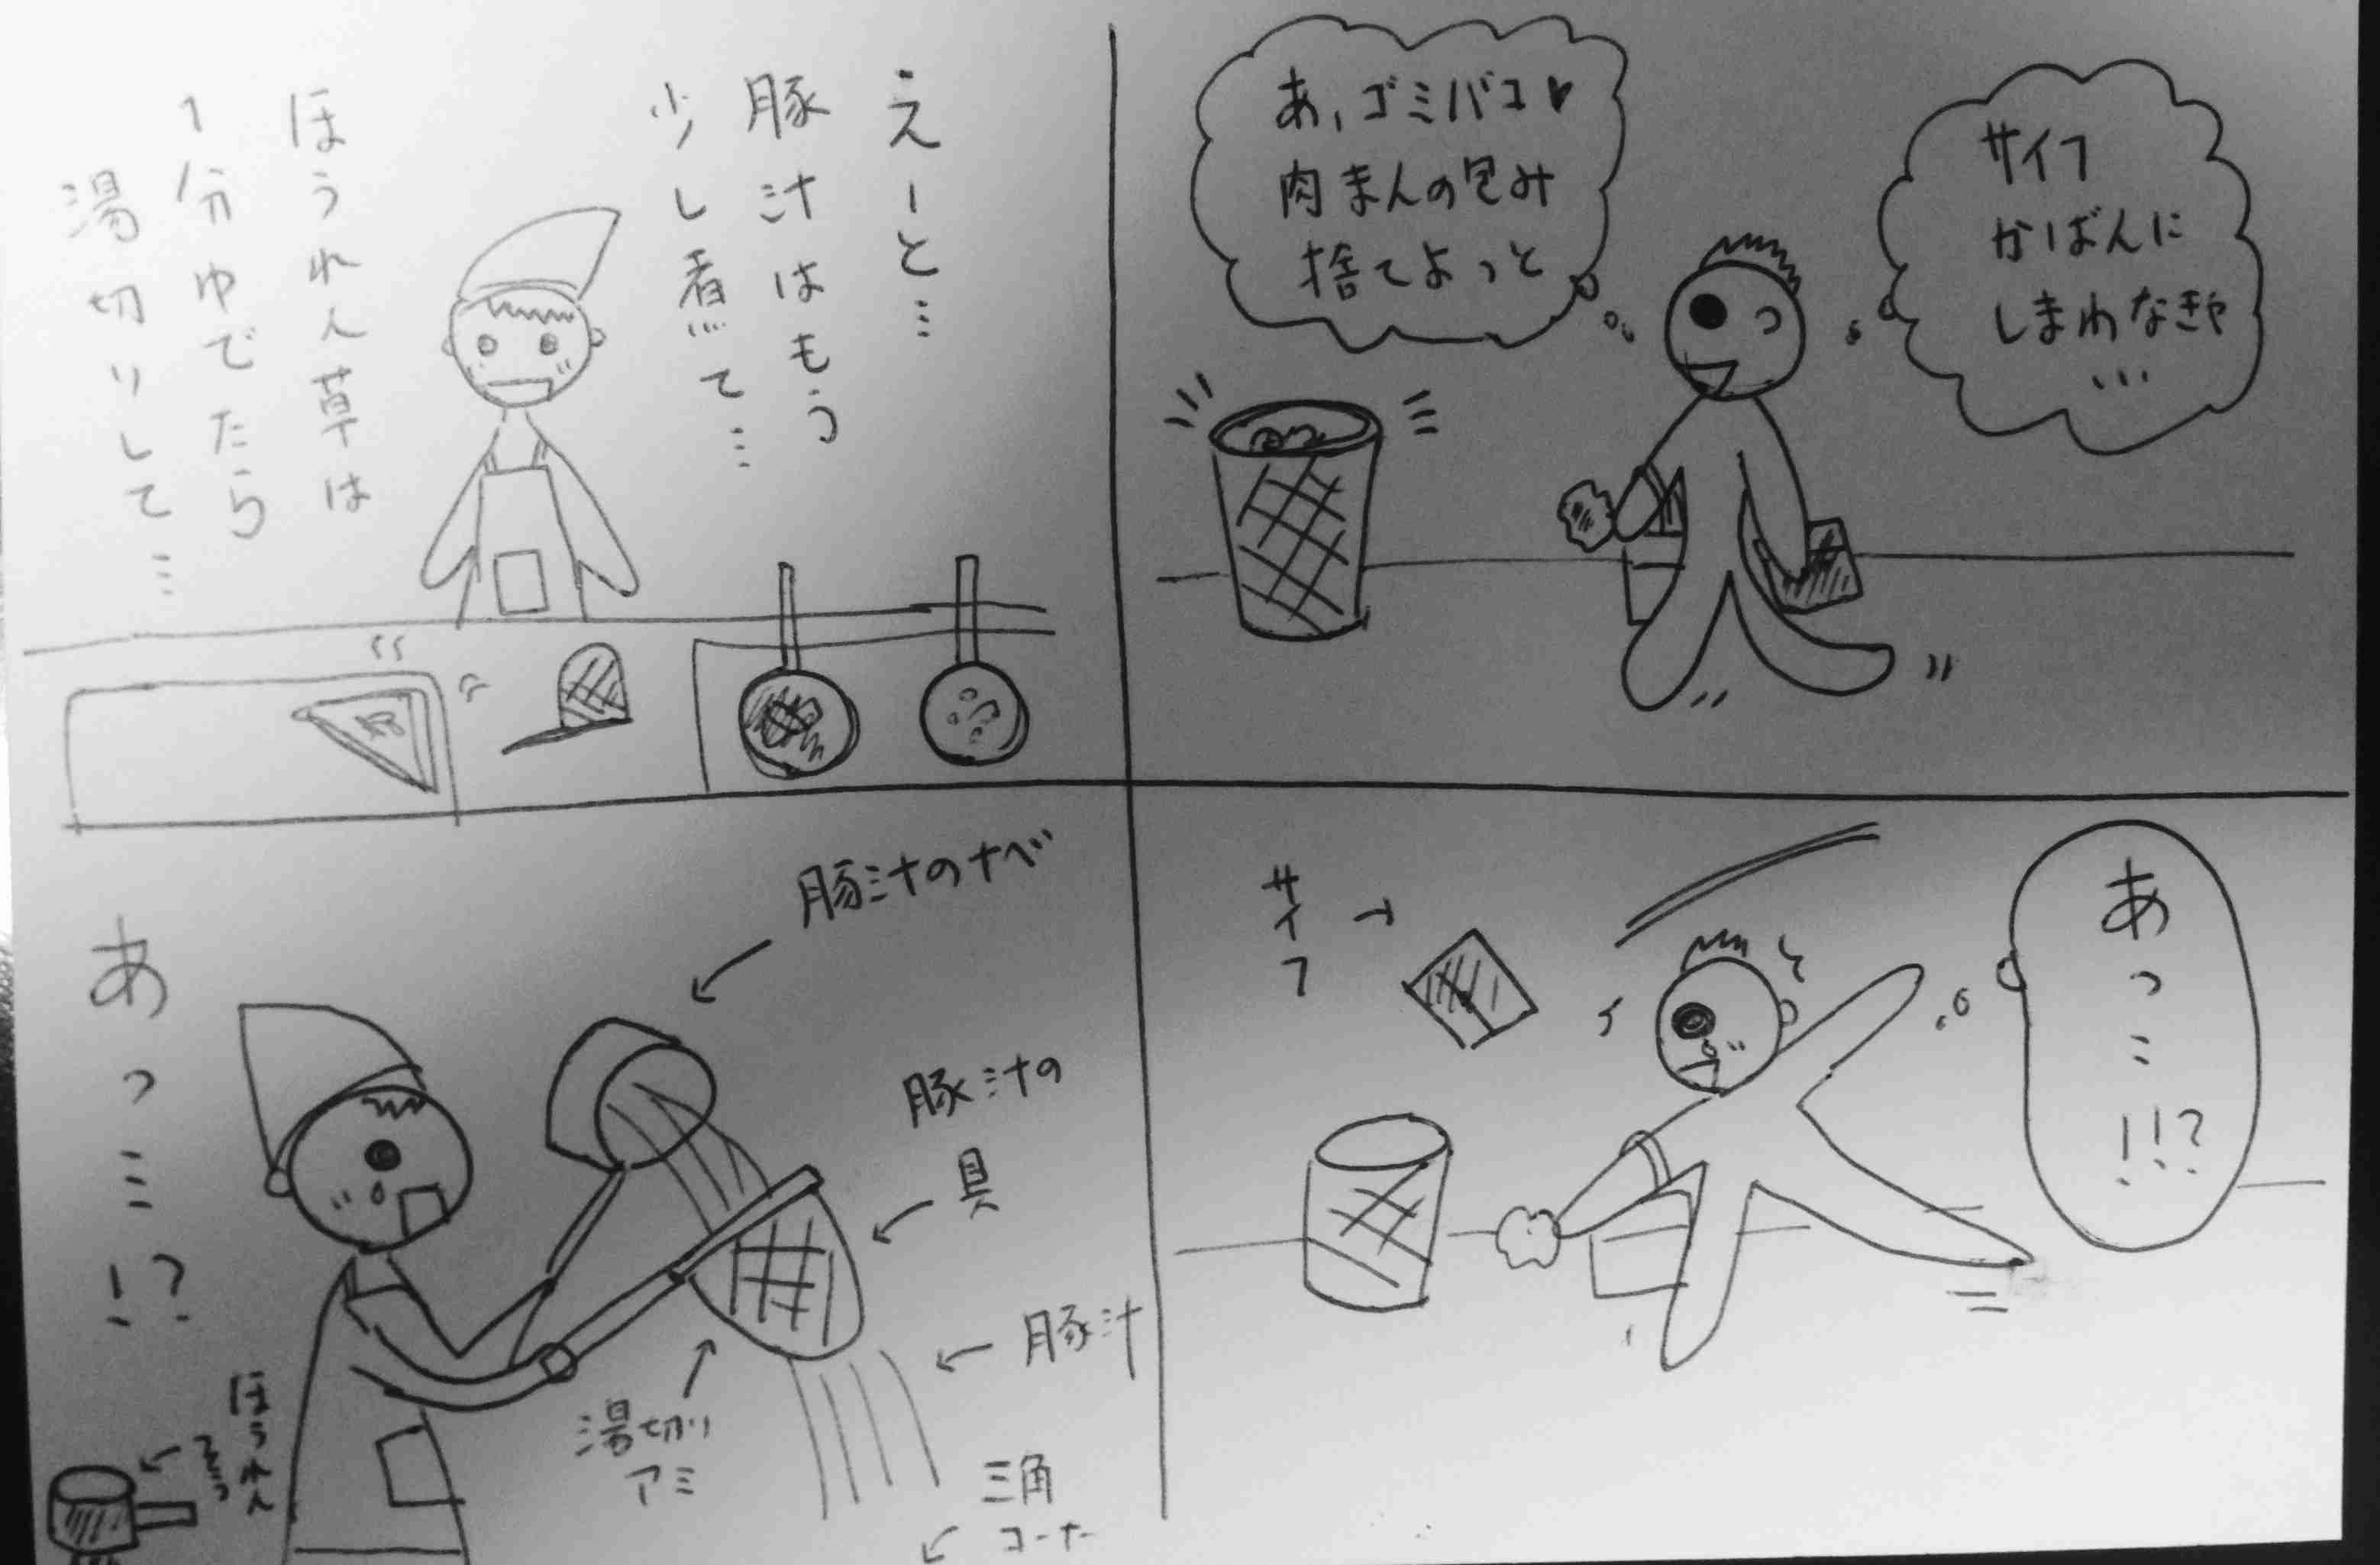 サイフ
かばんに
しまわなきゃ
…
あ、ゴミバコ♥
肉まんの包み
捨てよっと
あっミ!!?
サイフ→
えーと…
豚汁はもう
少し煮て…
ほうれん草は
1分ゆでたら
湯切りして…
豚汁のナベ
豚汁の
具
豚汁
湯切り
アミ
三角
コーナー
あっミ!?
ほうれん
そう